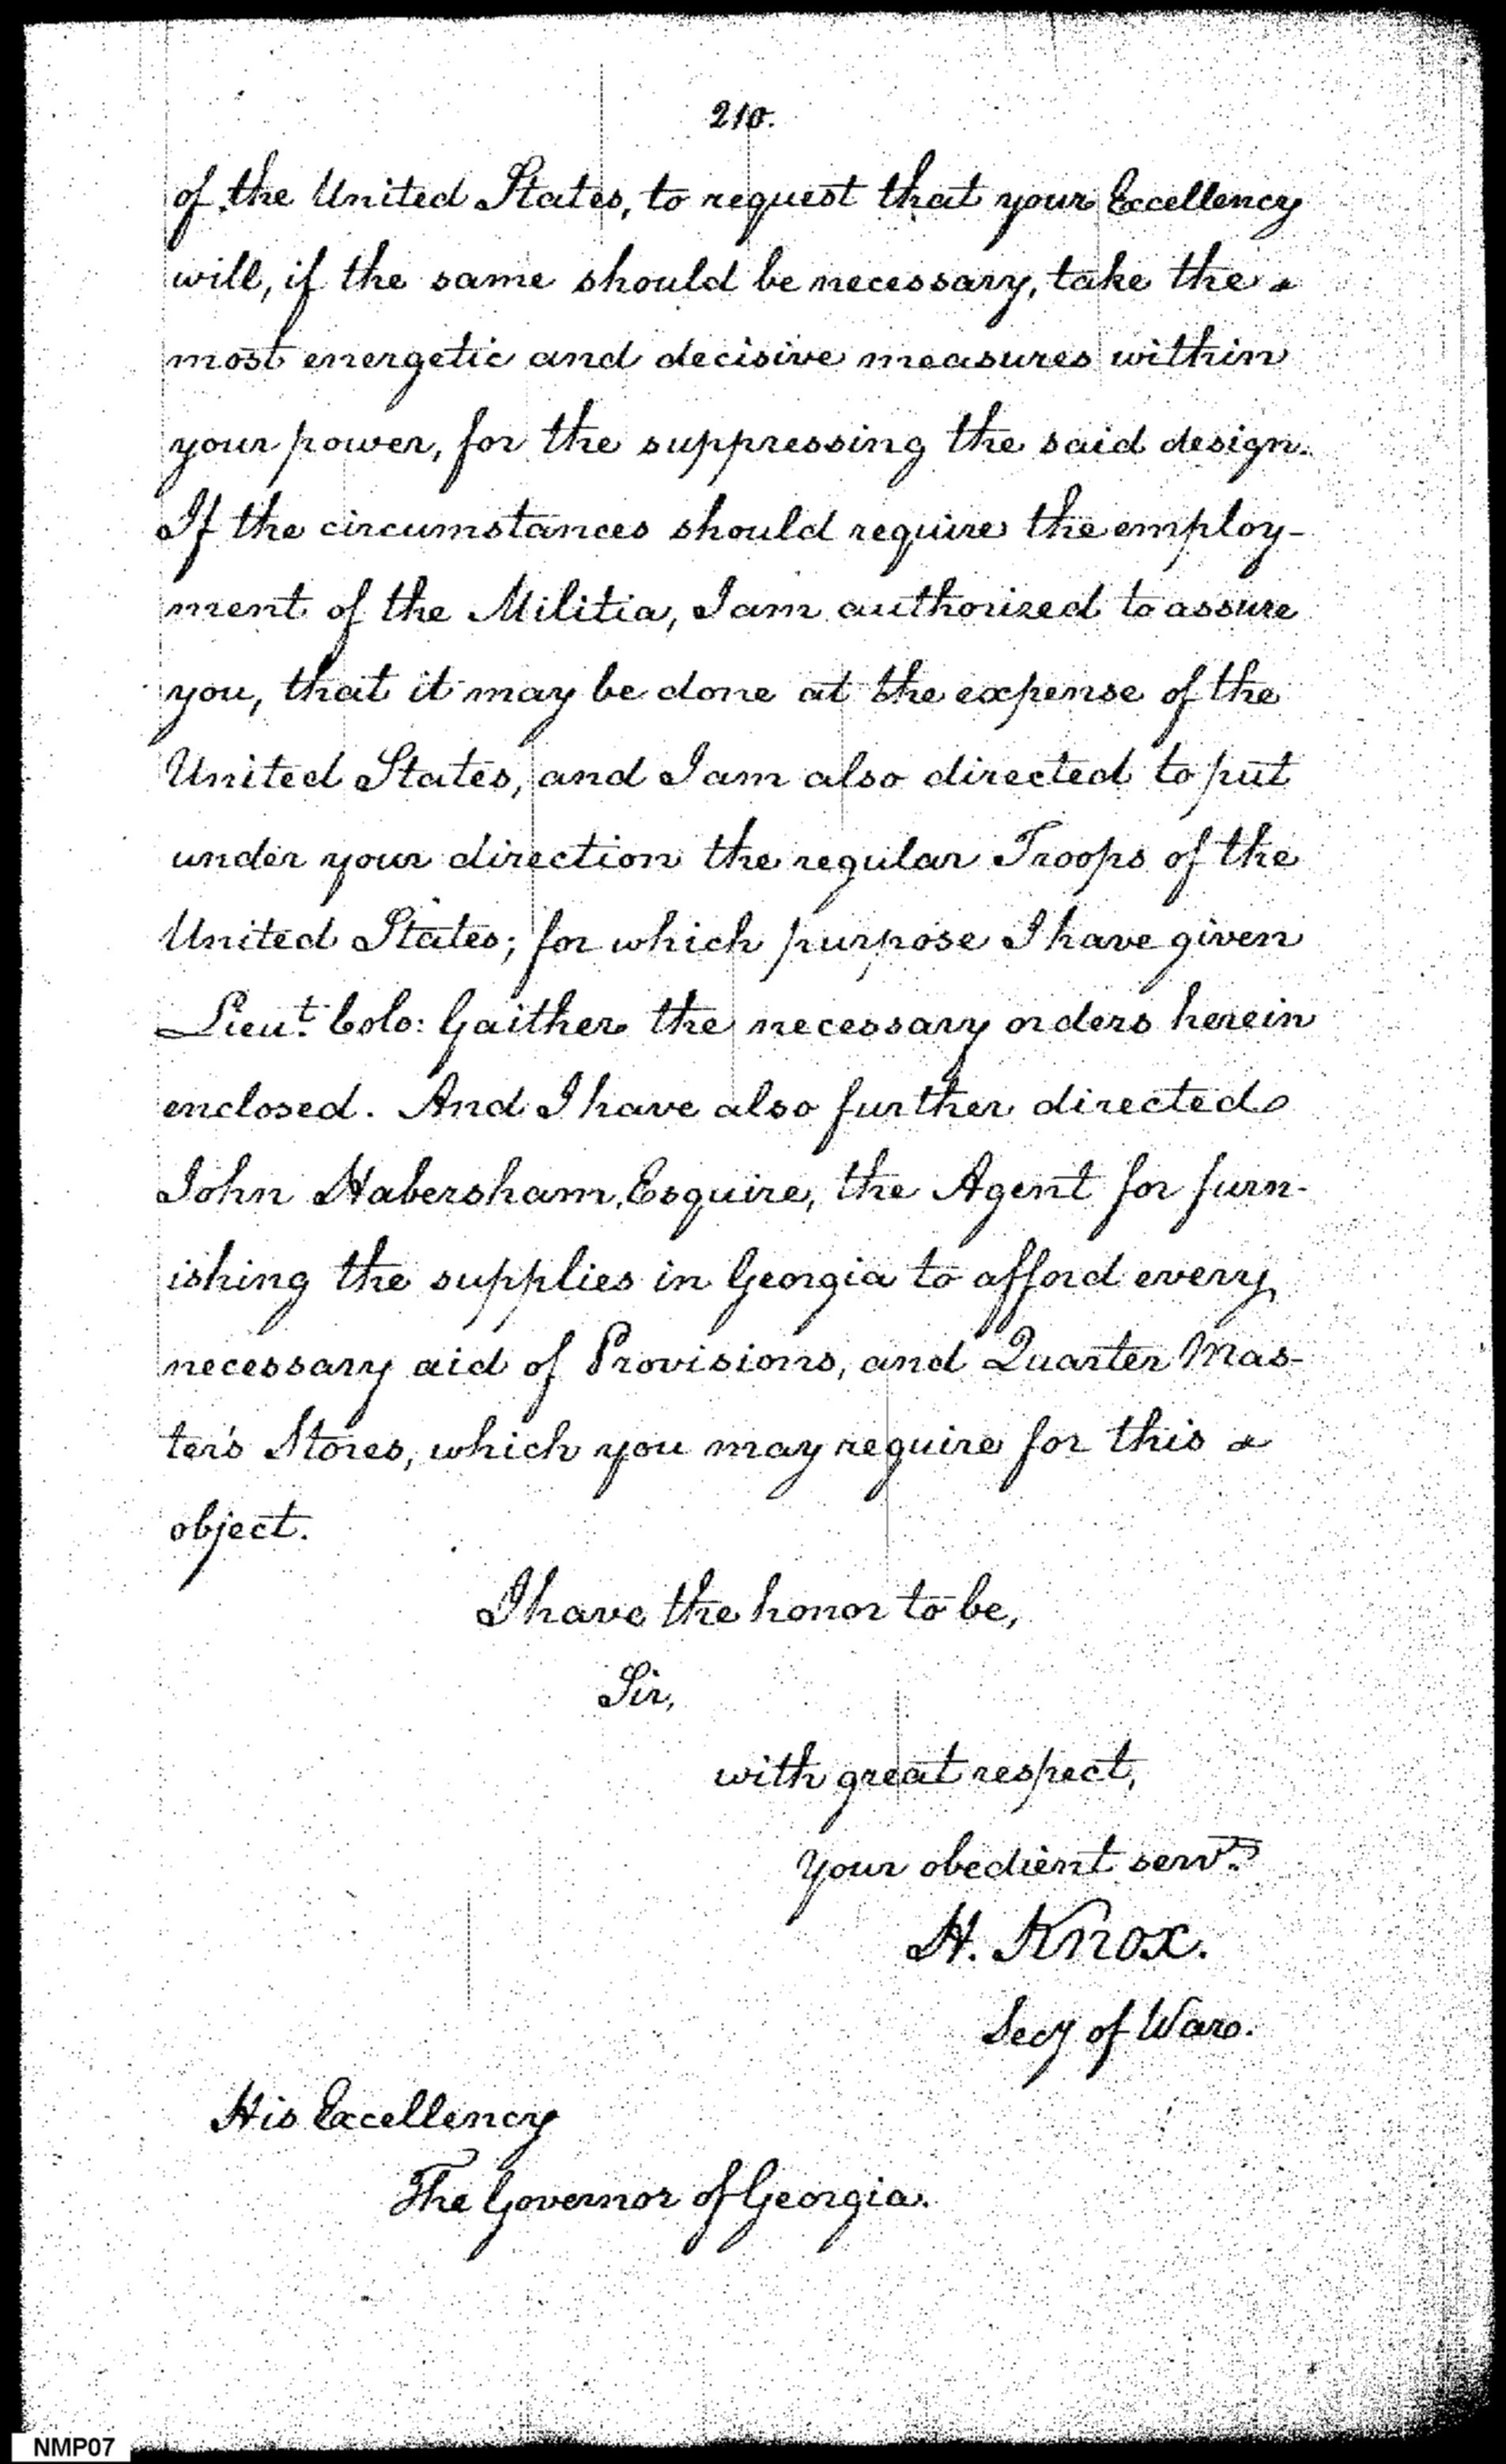 210.
of the United States, to request that your Excellency
will, if the same should be necessary, take the
most energetic and decisive measures within
your power, for the suppressing the said design.
If the circumstances should require the employ-
ment of the Militia, I am authorised to assure
you, that it may be done at the expense of the
United States, and I am also directed to put
under your direction the regular Troops of the
United States; for which purpose I have given
Lieut. Colo: Gaither the necessary orders herein
enclosed. And I have also further directed
John Habersham, Esquire, the Agent for furn-
ishing the supplies in Georgia to afford every
necessary aid of Provisions, and Quarter Mas-
ter's Stores, which you may require for this
object.
I have the honor to be,
Sir,
with great respect,
Your obedient servt.
H. Knox.
Secy of War.
His Excellency
The Governor of Georgia.
NMP07